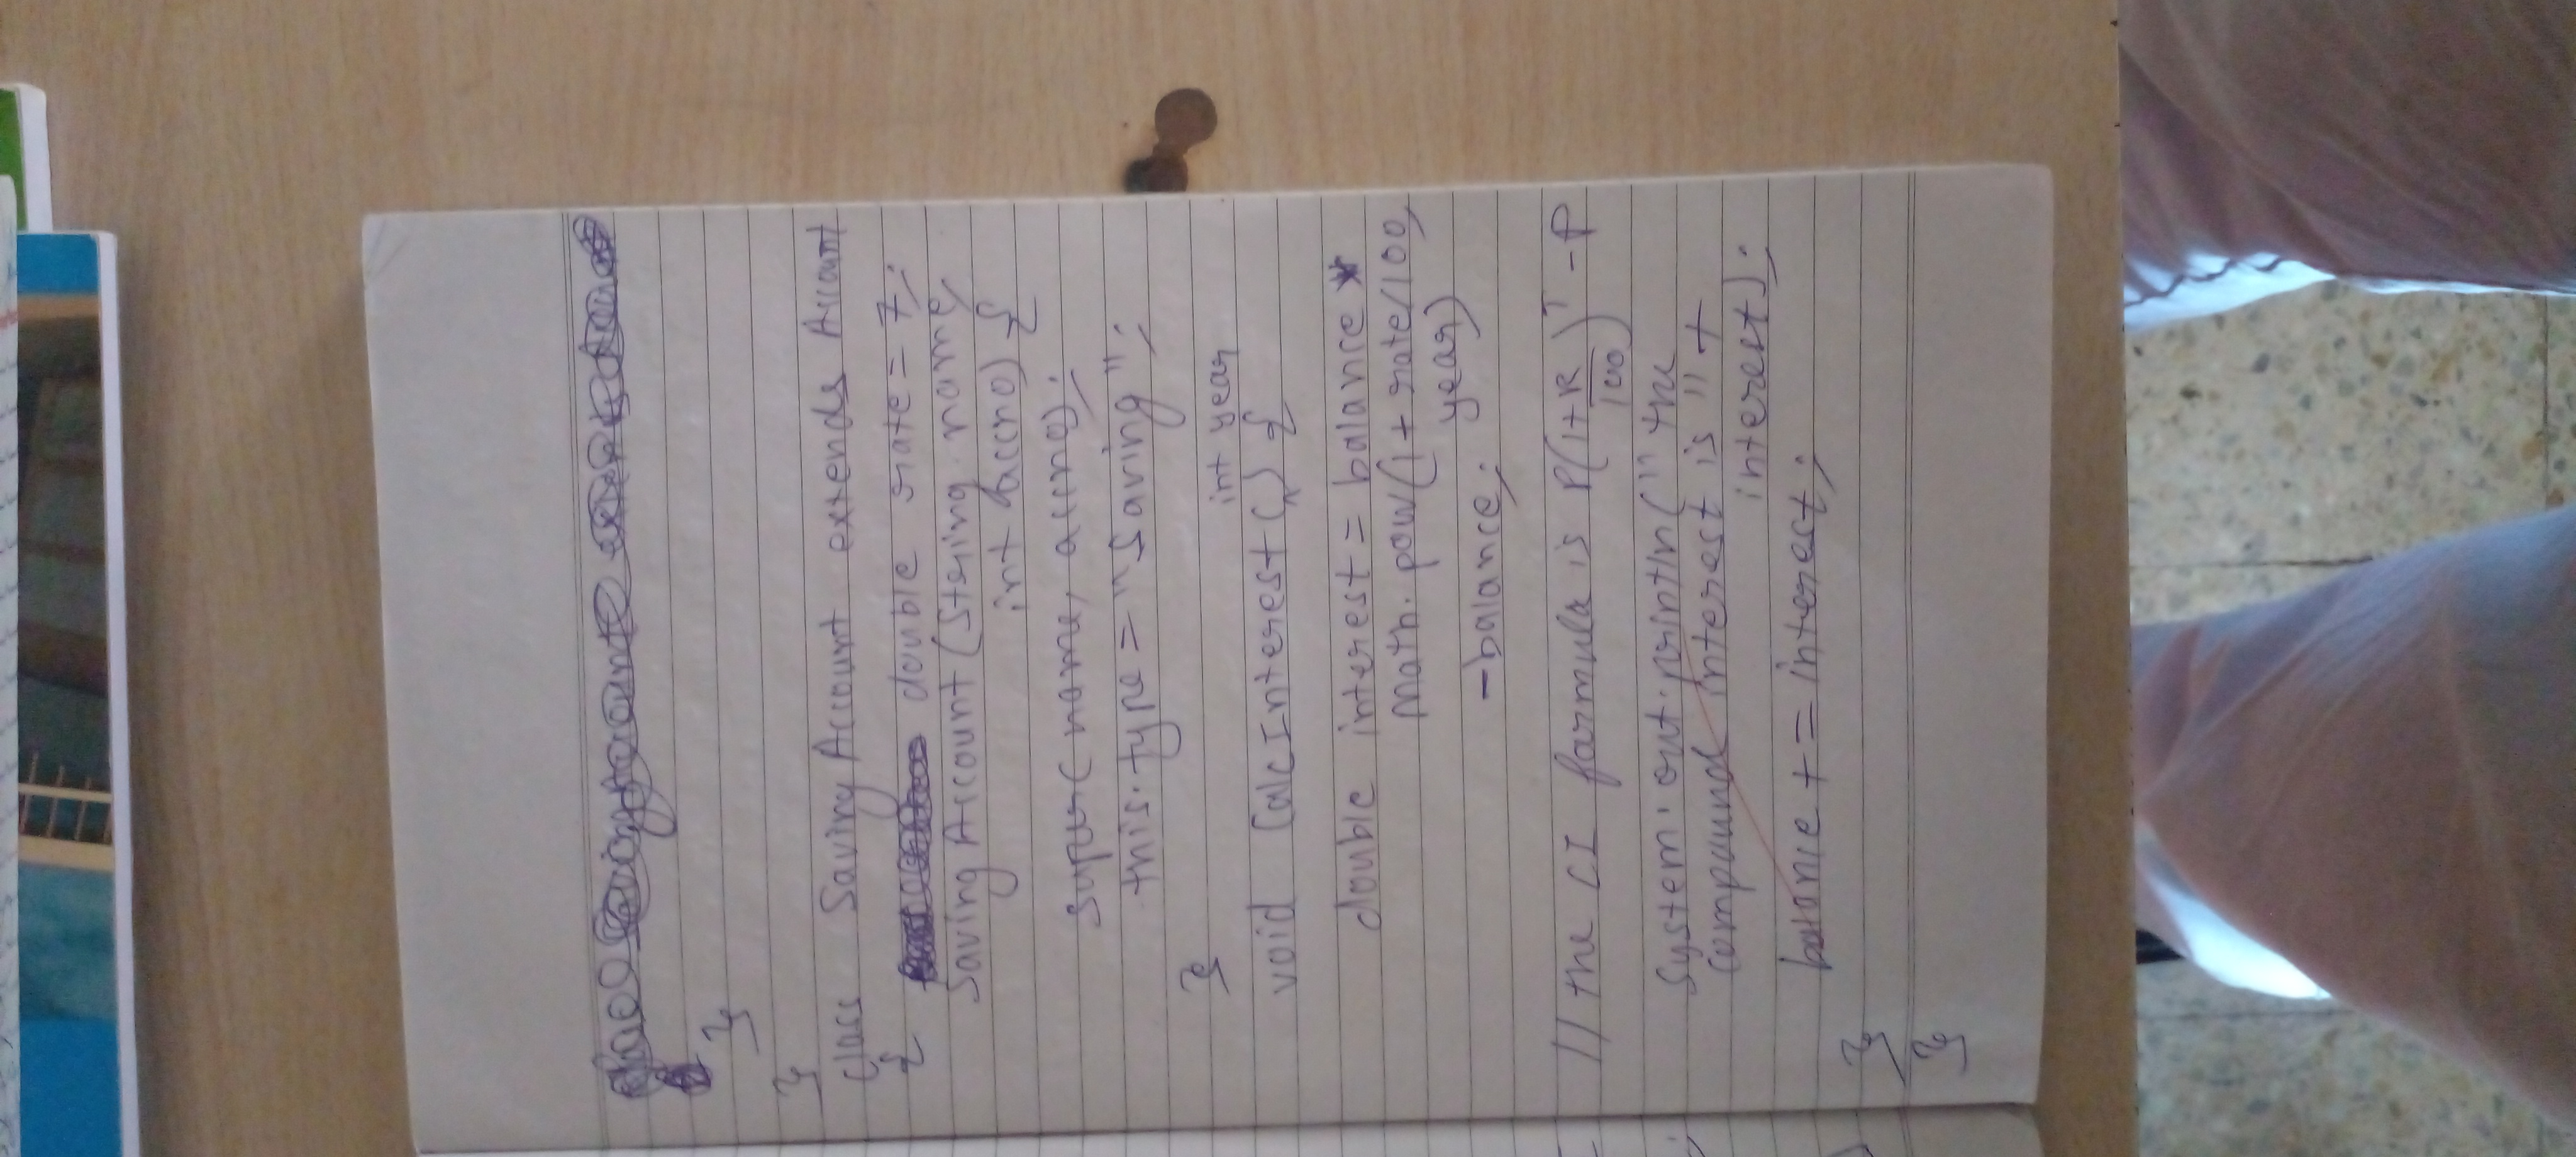 }
}
class SavingAccount extends Account
{ double rate = 7;
SavingAccount (String name,
int accno) {
super(name, accno);
this.type = "Saving";
}
int year
void CalcInterest () {
double interest = balance *
math.pow(1 + rate/100,
year)
-balance;
// the CI formula is P(1+R/100)^T - P
System.out.println("the
compound interest is " +
interest);
balance += interest;
}
}